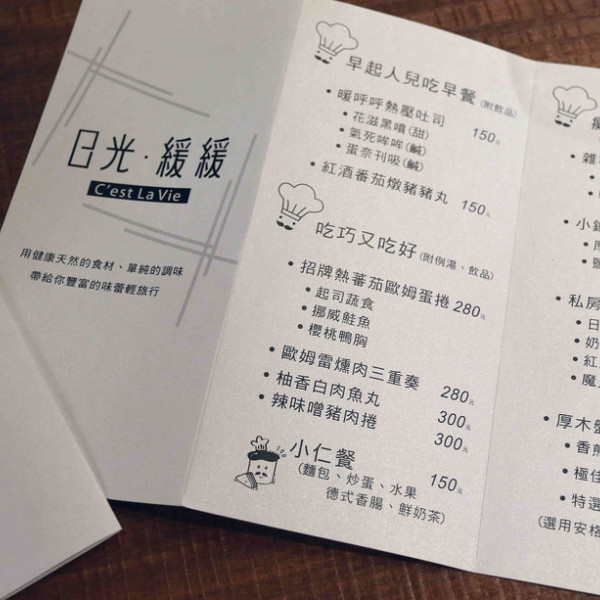 日光·緩緩
C'est La Vie
用健康天然的食材、單純的調味
帶給你豐富的味蕾輕旅行
早起人兒吃早餐(附飲品)
• 暖呼呼熱壓吐司 150元
• 花滋黑噴(甜)
• 氣死哞哞(鹹)
• 蛋奈刊吸(鹹)
• 紅酒番茄燉豬豬丸 150元
吃巧又吃好(附例湯、飲品)
• 招牌熱蕃茄歐姆蛋捲 280元
• 起司蔬食
• 挪威鮭魚
• 櫻桃鴨胸
• 歐姆雷燻肉三重奏 280元
• 柚香白肉魚丸 300元
• 辣味噌豬肉捲 300元
小仁餐 150元
(麵包、炒蛋、水果
德式香腸、鮮奶茶)
• 小
• 厚
• 私房
• 日
• 奶
• 紅
• 魔
• 厚木盤
• 香煎
• 極佳
• 特選
(選用安格